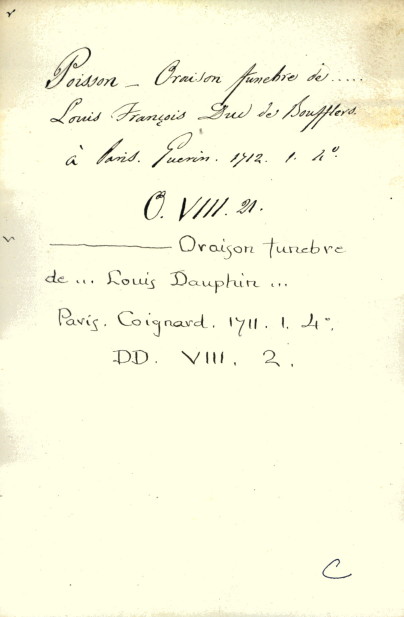 Poisson - Oraison funebre de .....
Louis François Duc de Boufflers.
à Paris. Guerin. 1712. 1. 4°.
O. VIII. 21.
——— Oraison funebre
de ... Louis Dauphin ...
Paris. Coignard. 1711. 1. 4°.
DD. VIII. 2.
C